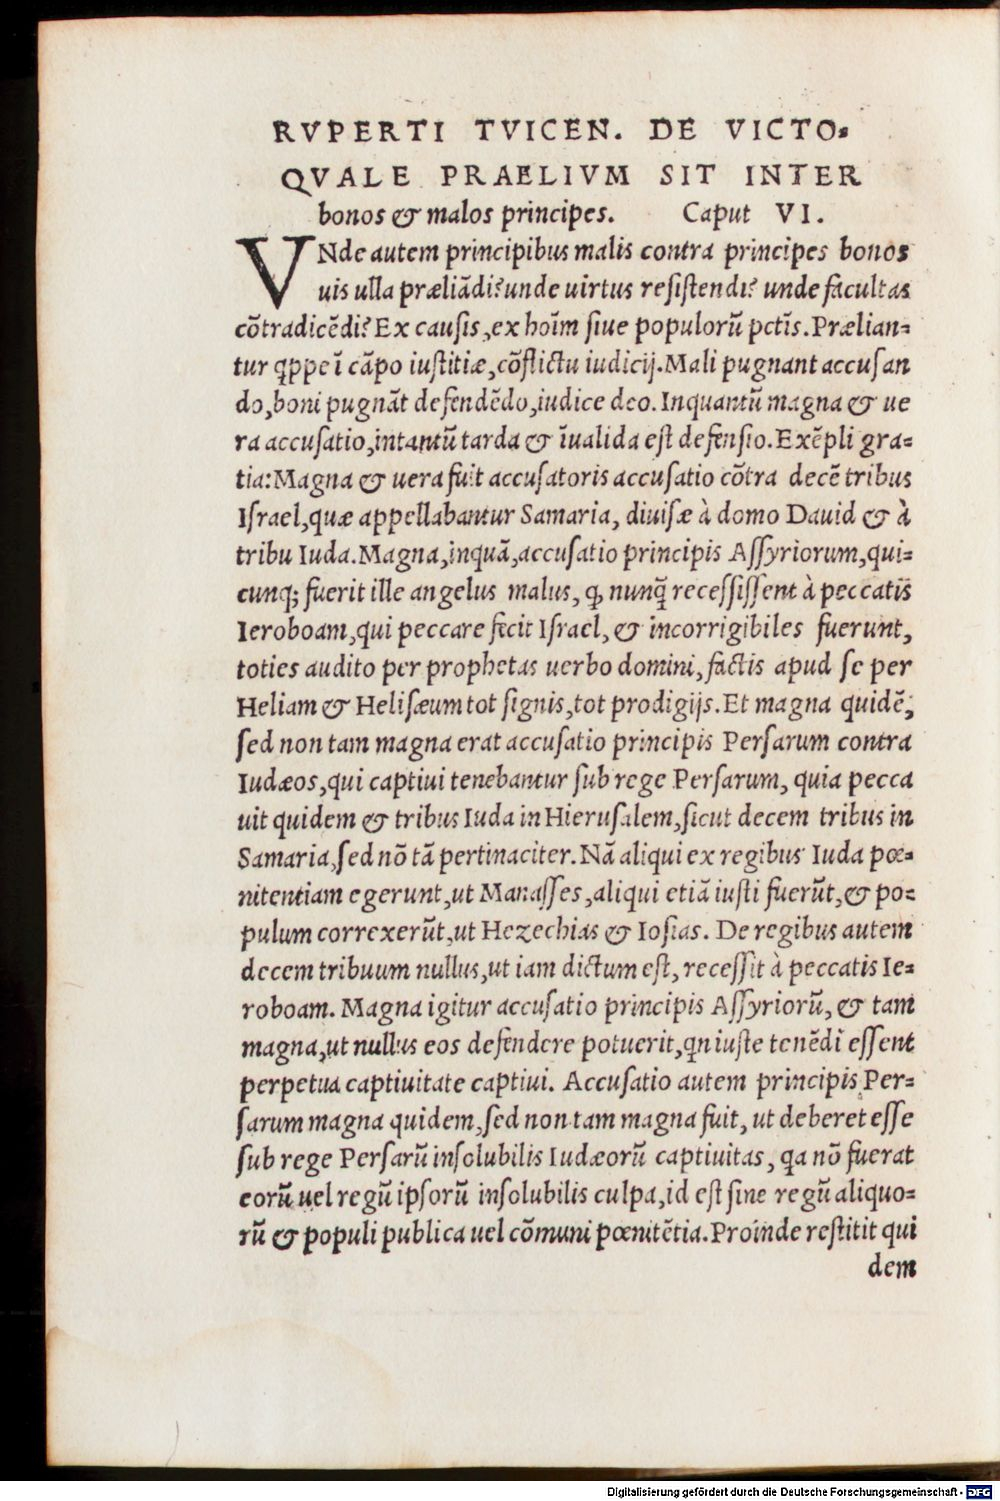 RVPERTI TVICEN. DE VICTO-
QVALE PRAELIVM SIT INTER
bonos & malos principes. Caput VI.
VNde autem principibus malis contra principes bonos
uis ulla præliãdi? unde uirtus resistendi? unde facultas
cõtradicẽdi? Ex causis, ex hoĩm siue populorũ pctĩs. Prælian-
tur qppe ĩ cãpo iustitiæ, cõflictu iudicij. Mali pugnant accusan
do, boni pugnãt defendẽdo, iudice deo. Inquantũ magna & ue
ra accusatio, intantũ tarda & ĩualida est defensio. Exẽpli gra-
tia: Magna & uera fuit accusatoris accusatio cõtra decẽ tribus
Israel, quæ appellabantur Samaria, diuisæ à domo Dauid & à
tribu Iuda. Magna, inquã, accusatio principis Assyriorum, qui-
cunq; fuerit ille angelus malus, ꝙ nunq̃ recessissent à peccatis
Ieroboam, qui peccare fecit Israel, & incorrigibiles fuerunt,
toties audito per prophetas uerbo domini, factis apud se per
Heliam & Helisæum tot signis, tot prodigijs. Et magna quidẽ,
sed non tam magna erat accusatio principis Persarum contra
Iudæos, qui captiui tenebantur sub rege Persarum, quia pecca
uit quidem & tribus Iuda in Hierusalem, sicut decem tribus in
Samaria, sed nõ tã pertinaciter. Nã aliqui ex regibus Iuda pœ-
nitentiam egerunt, ut Manasses, aliqui etiã iusti fuerũt, & po-
pulum correxerũt, ut Hezechias & Iosias. De regibus autem
decem tribuum nullus, ut iam dictum est, recessit à peccatis Ie-
roboam. Magna igitur accusatio principis Assyriorũ, & tam
magna, ut nullus eos defendere potuerit, qn iuste tenẽdi essent
perpetua captiuitate captiui. Accusatio autem principis Per-
sarum magna quidem, sed non tam magna fuit, ut deberet esse
sub rege Persarũ insolubilis Iudæorũ captiuitas, qa nõ fuerat
eorũ uel regũ ipsorũ insolubilis culpa, id est sine regũ aliquo-
rũ & populi publica uel cõmuni pœnitẽtia. Proinde restitit qui
dem
Digitalisierung gefördert durch die Deutsche Forschungsgemeinschaft - DFG